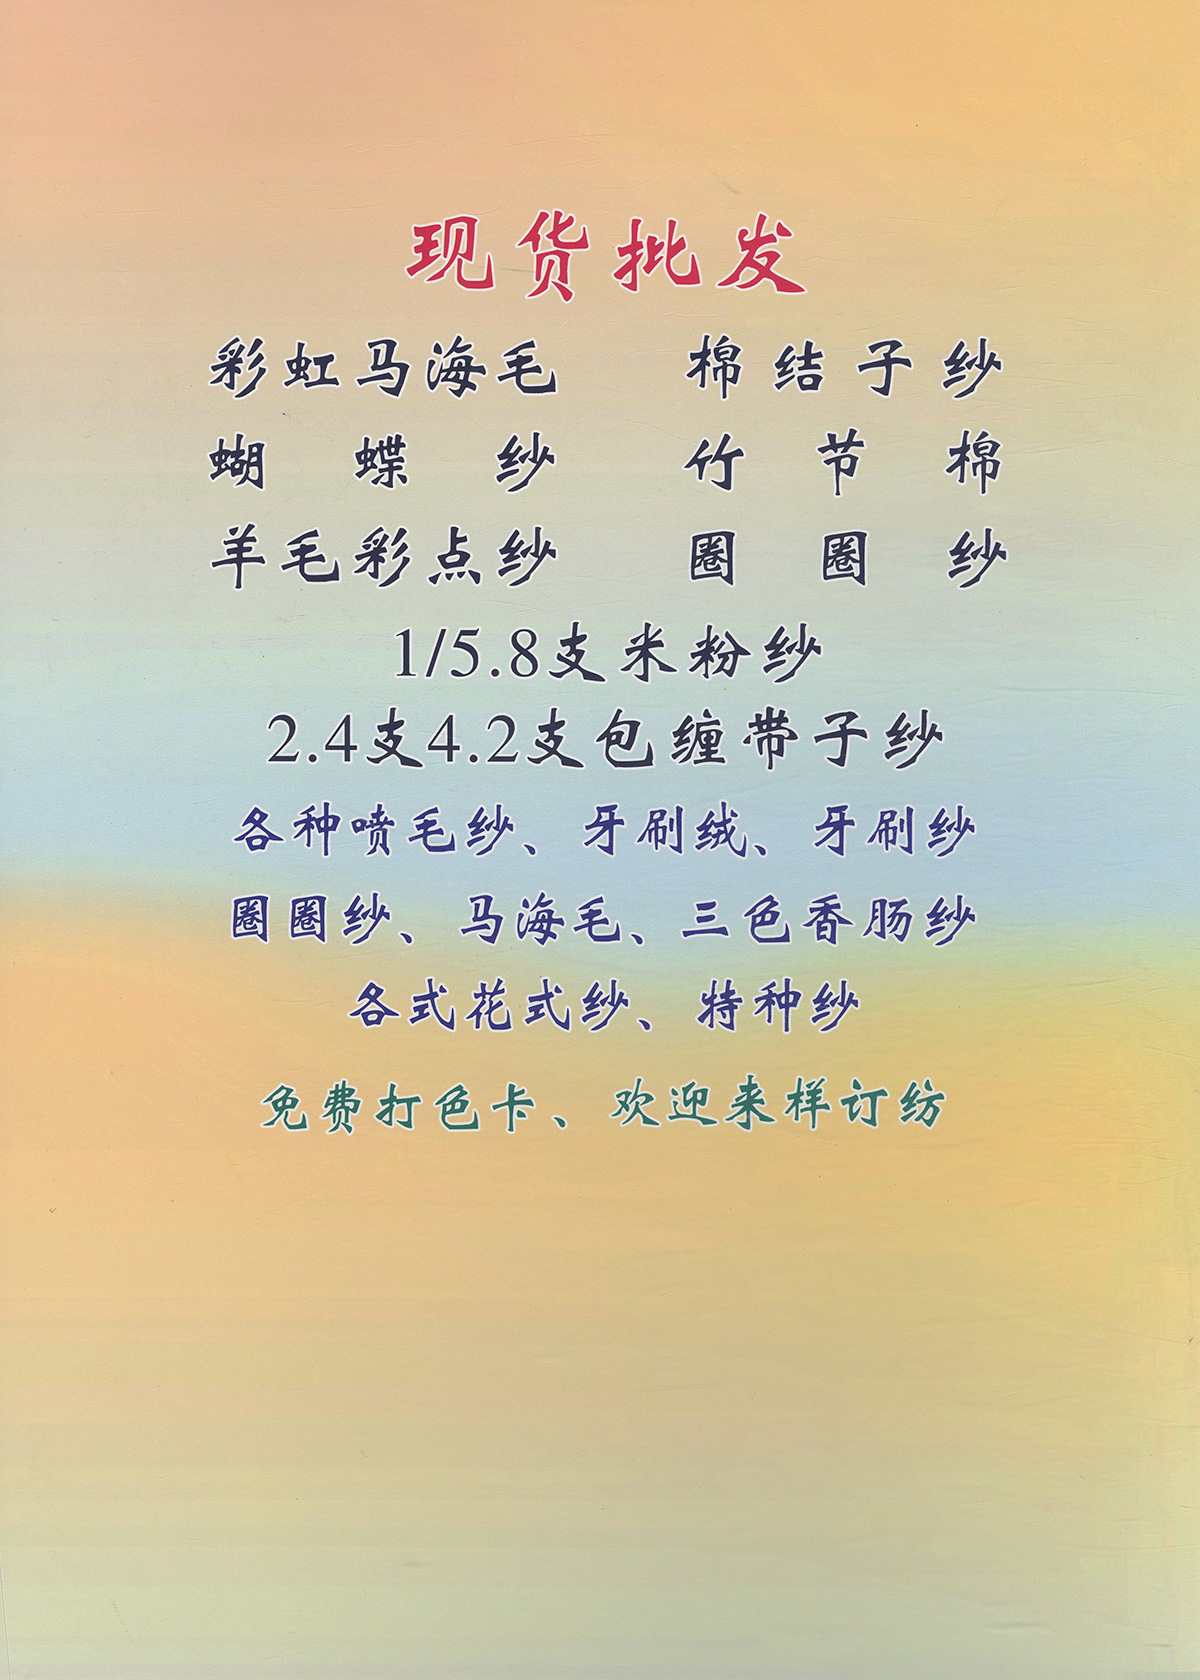 现货批发
彩虹马海毛 棉结子纱
蝴蝶纱 竹节棉
羊毛彩点纱 圈圈纱
1/5.8支米粉纱
2.4支4.2支包缠带子纱
各种喷毛纱、牙刷绒、牙刷纱
圈圈纱、马海毛、三色香肠纱
各式花式纱、特种纱
免费打色卡、欢迎来样订纺